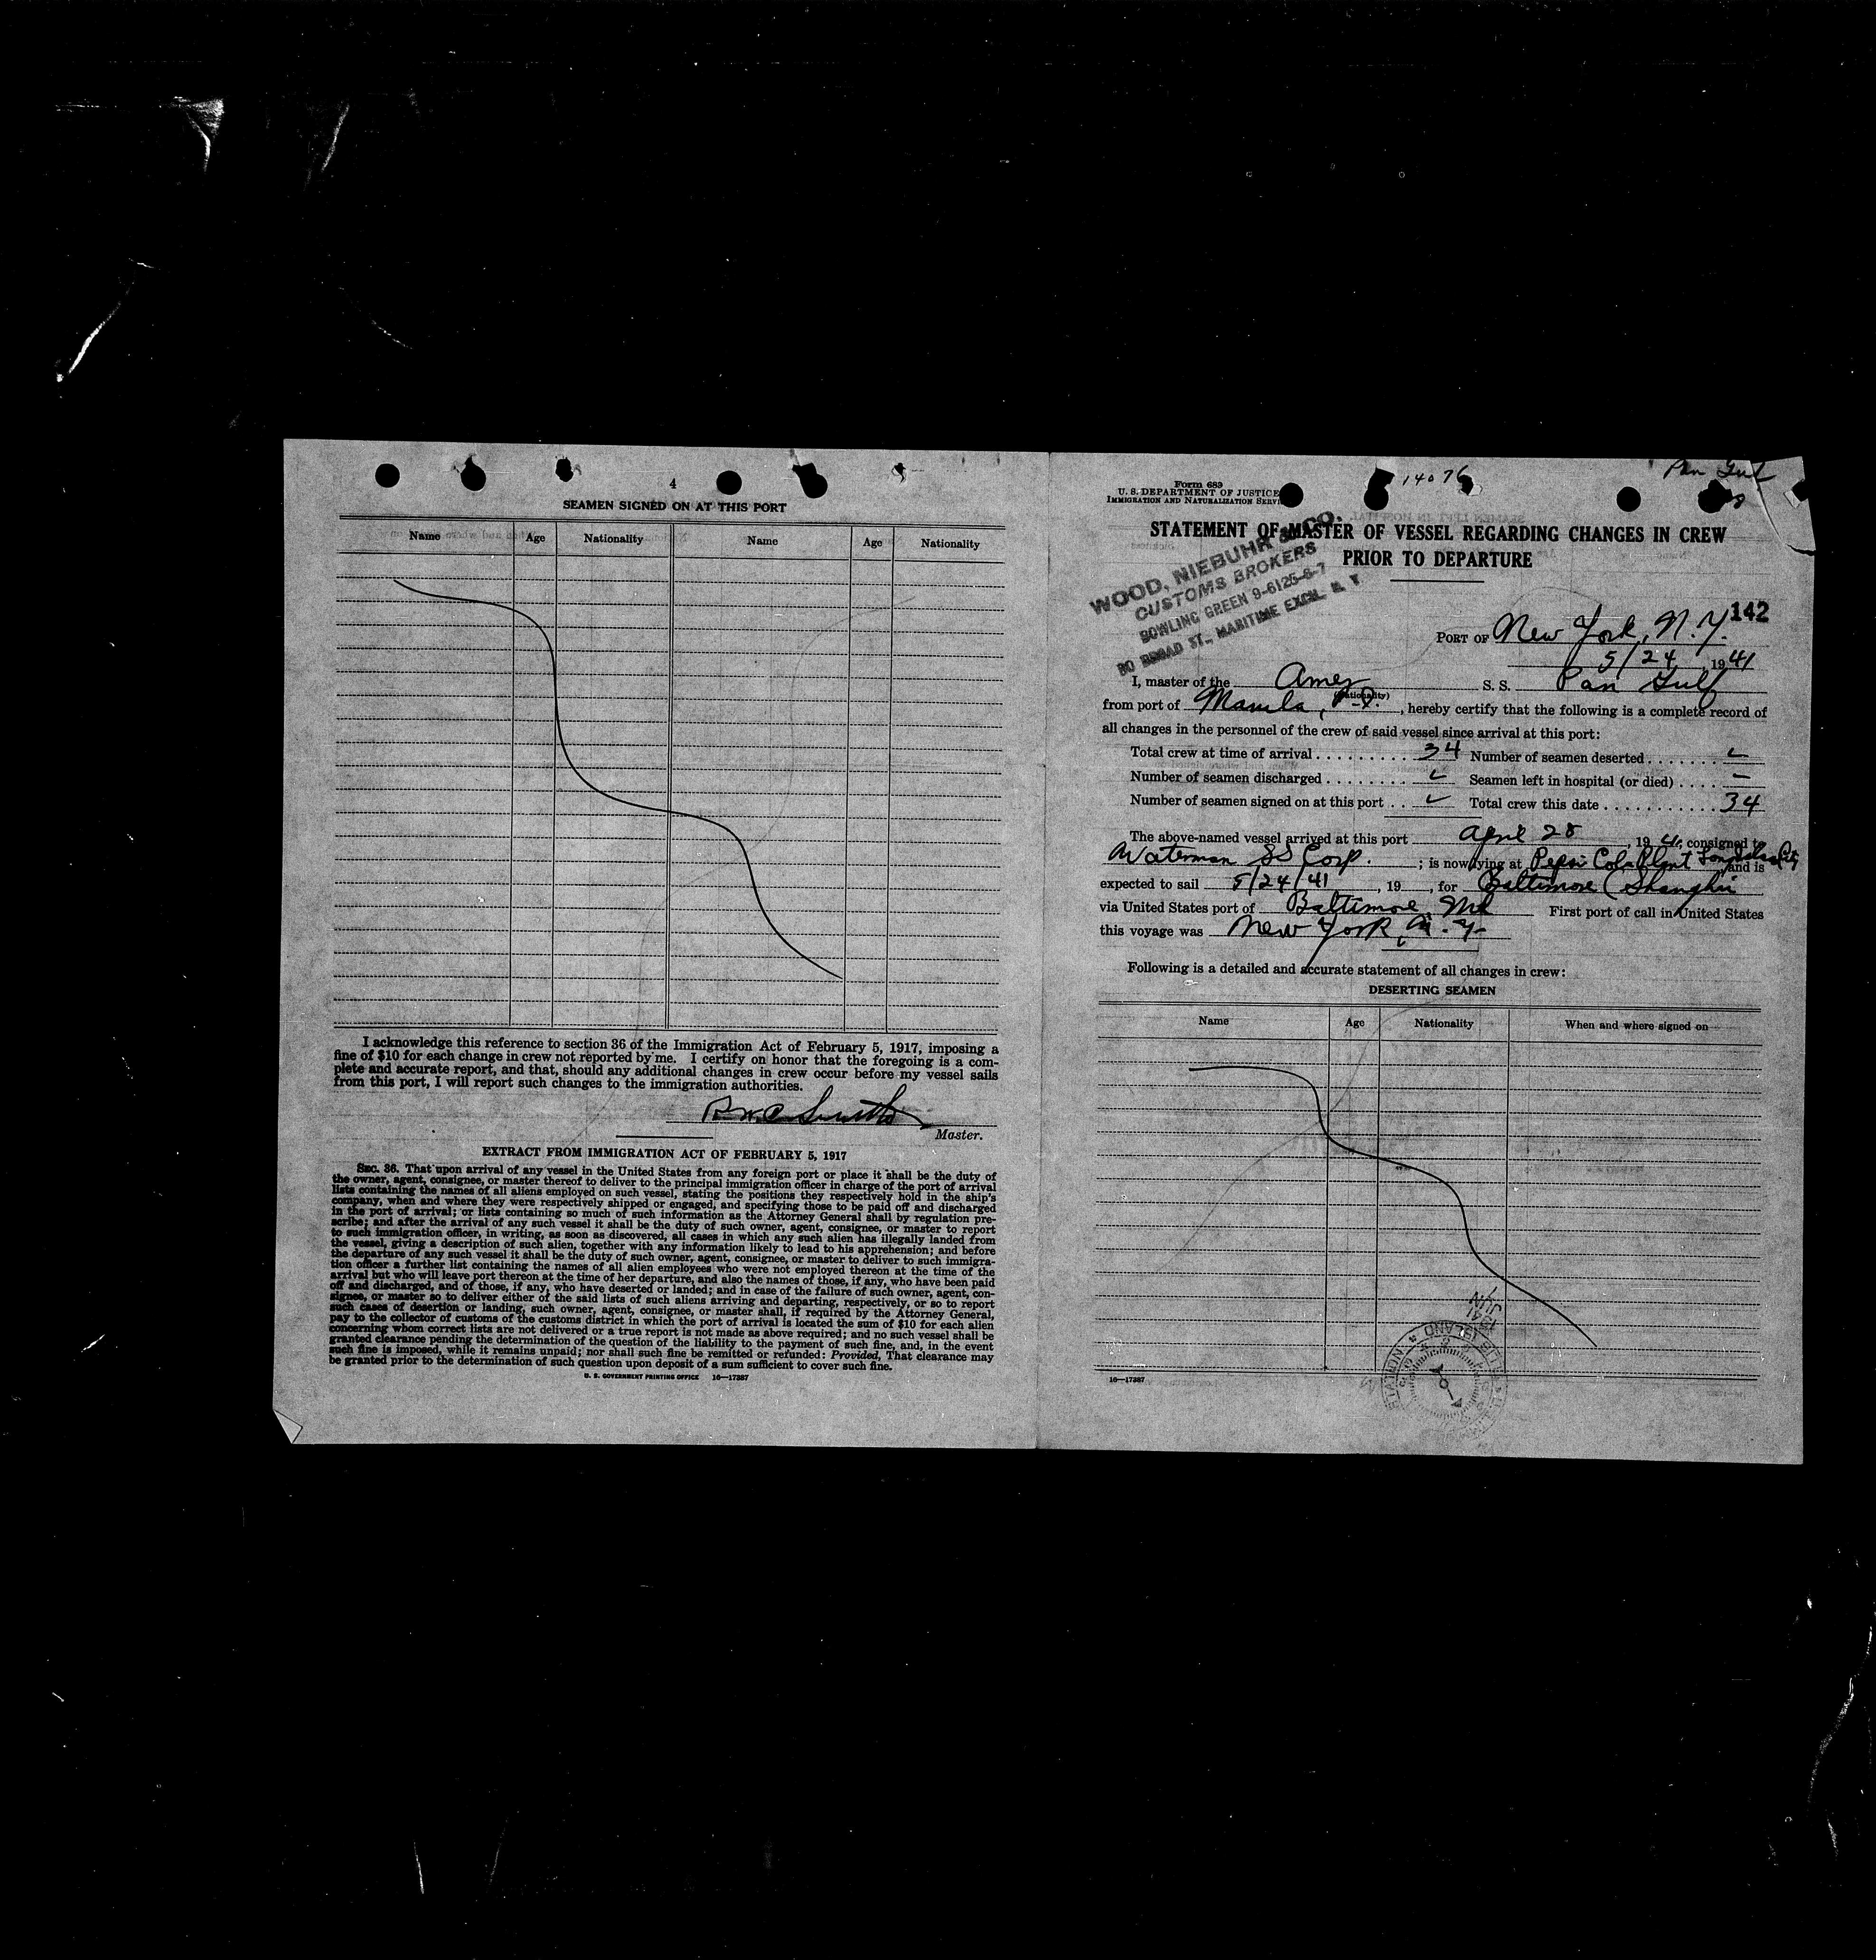 4
SEAMEN SIGNED ON AT THIS PORT
Name Age Nationality Name Age Nationality
I acknowledge this reference to section 36 of the Immigration Act of February 5, 1917, imposing a
fine of $10 for each change in crew not reported by me. I certify on honor that the foregoing is a com-
plete and accurate report, and that, should any additional changes in crew occur before my vessel sails
from this port, I will report such changes to the immigration authorities.
Smith
Master.
EXTRACT FROM IMMIGRATION ACT OF FEBRUARY 5, 1917
SEC. 36. That upon arrival of any vessel in the United States from any foreign port or place it shall be the duty of
the owner, agent, consignee, or master thereof to deliver to the principal immigration officer in charge of the port of arrival
lists containing the names of all aliens employed on such vessel, stating the positions they respectively hold in the ship's
company, when and where they were respectively shipped or engaged, and specifying those to be paid off and discharged
in the port of arrival; or lists containing so much of such information as the Attorney General shall by regulation pre-
scribe; and after the arrival of any such vessel it shall be the duty of such owner, agent, consignee, or master to report
to such immigration officer, in writing, as soon as discovered, all cases in which any such alien has illegally landed from
the vessel, giving a description of such alien, together with any information likely to lead to his apprehension; and before
the departure of any such vessel it shall be the duty of such owner, agent, consignee, or master to deliver to such immigra-
tion officer a further list containing the names of all alien employees who were not employed thereon at the time of the
arrival but who will leave port thereon at the time of her departure, and also the names of those, if any, who have been paid
off and discharged, and of those, if any, who have deserted or landed; and in case of the failure of such owner, agent, con-
signee, or master so to deliver either of the said lists of such aliens arriving and departing, respectively, or so to report
such cases of desertion or landing, such owner, agent, consignee, or master shall, if required by the Attorney General,
pay to the collector of customs of the customs district in which the port of arrival is located the sum of $10 for each alien
concerning whom correct lists are not delivered or a true report is not made as above required; and no such vessel shall be
granted clearance pending the determination of the question of the liability to the payment of such fine, and, in the event
such fine is imposed, while it remains unpaid; nor shall such fine be remitted or refunded: Provided, That clearance may
be granted prior to the determination of such question upon deposit of a sum sufficient to cover such fine.
U. S. GOVERNMENT PRINTING OFFICE 16—17387
Form 689
U. S. DEPARTMENT OF JUSTICE
IMMIGRATION AND NATURALIZATION SERVI
14076
Pan Gulf
STATEMENT OF MASTER OF VESSEL REGARDING CHANGES IN CREW
PRIOR TO DEPARTURE
WOOD, NIEBUHR & CO.
CUSTOMS BROKERS
BOWLING GREEN 9-6125-6-7
80 BROAD ST., MARITIME EXCH. N. Y
142
PORT OF New York, N.Y.
5/24, 1941
I, master of the Amer S. S. Pan Gulf
(Nationality)
from port of Manila, P.I., hereby certify that the following is a complete record of
all changes in the personnel of the crew of said vessel since arrival at this port:
Total crew at time of arrival 34 Number of seamen deserted
Number of seamen discharged Seamen left in hospital (or died) –
Number of seamen signed on at this port Total crew this date 34
The above-named vessel arrived at this port April 28, 1941, consigned to
Waterman SS Corp.; is now lying at Pepsi Cola Plant Long Island City and is
expected to sail 5/24/41, 19 , for Baltimore (Shanghai
via United States port of Baltimore, Md First port of call in United States
this voyage was New York, N.Y.
Following is a detailed and accurate statement of all changes in crew:
DESERTING SEAMEN
Name Age Nationality When and where signed on
JUN
1941
ISLAND
STATION
16—17387